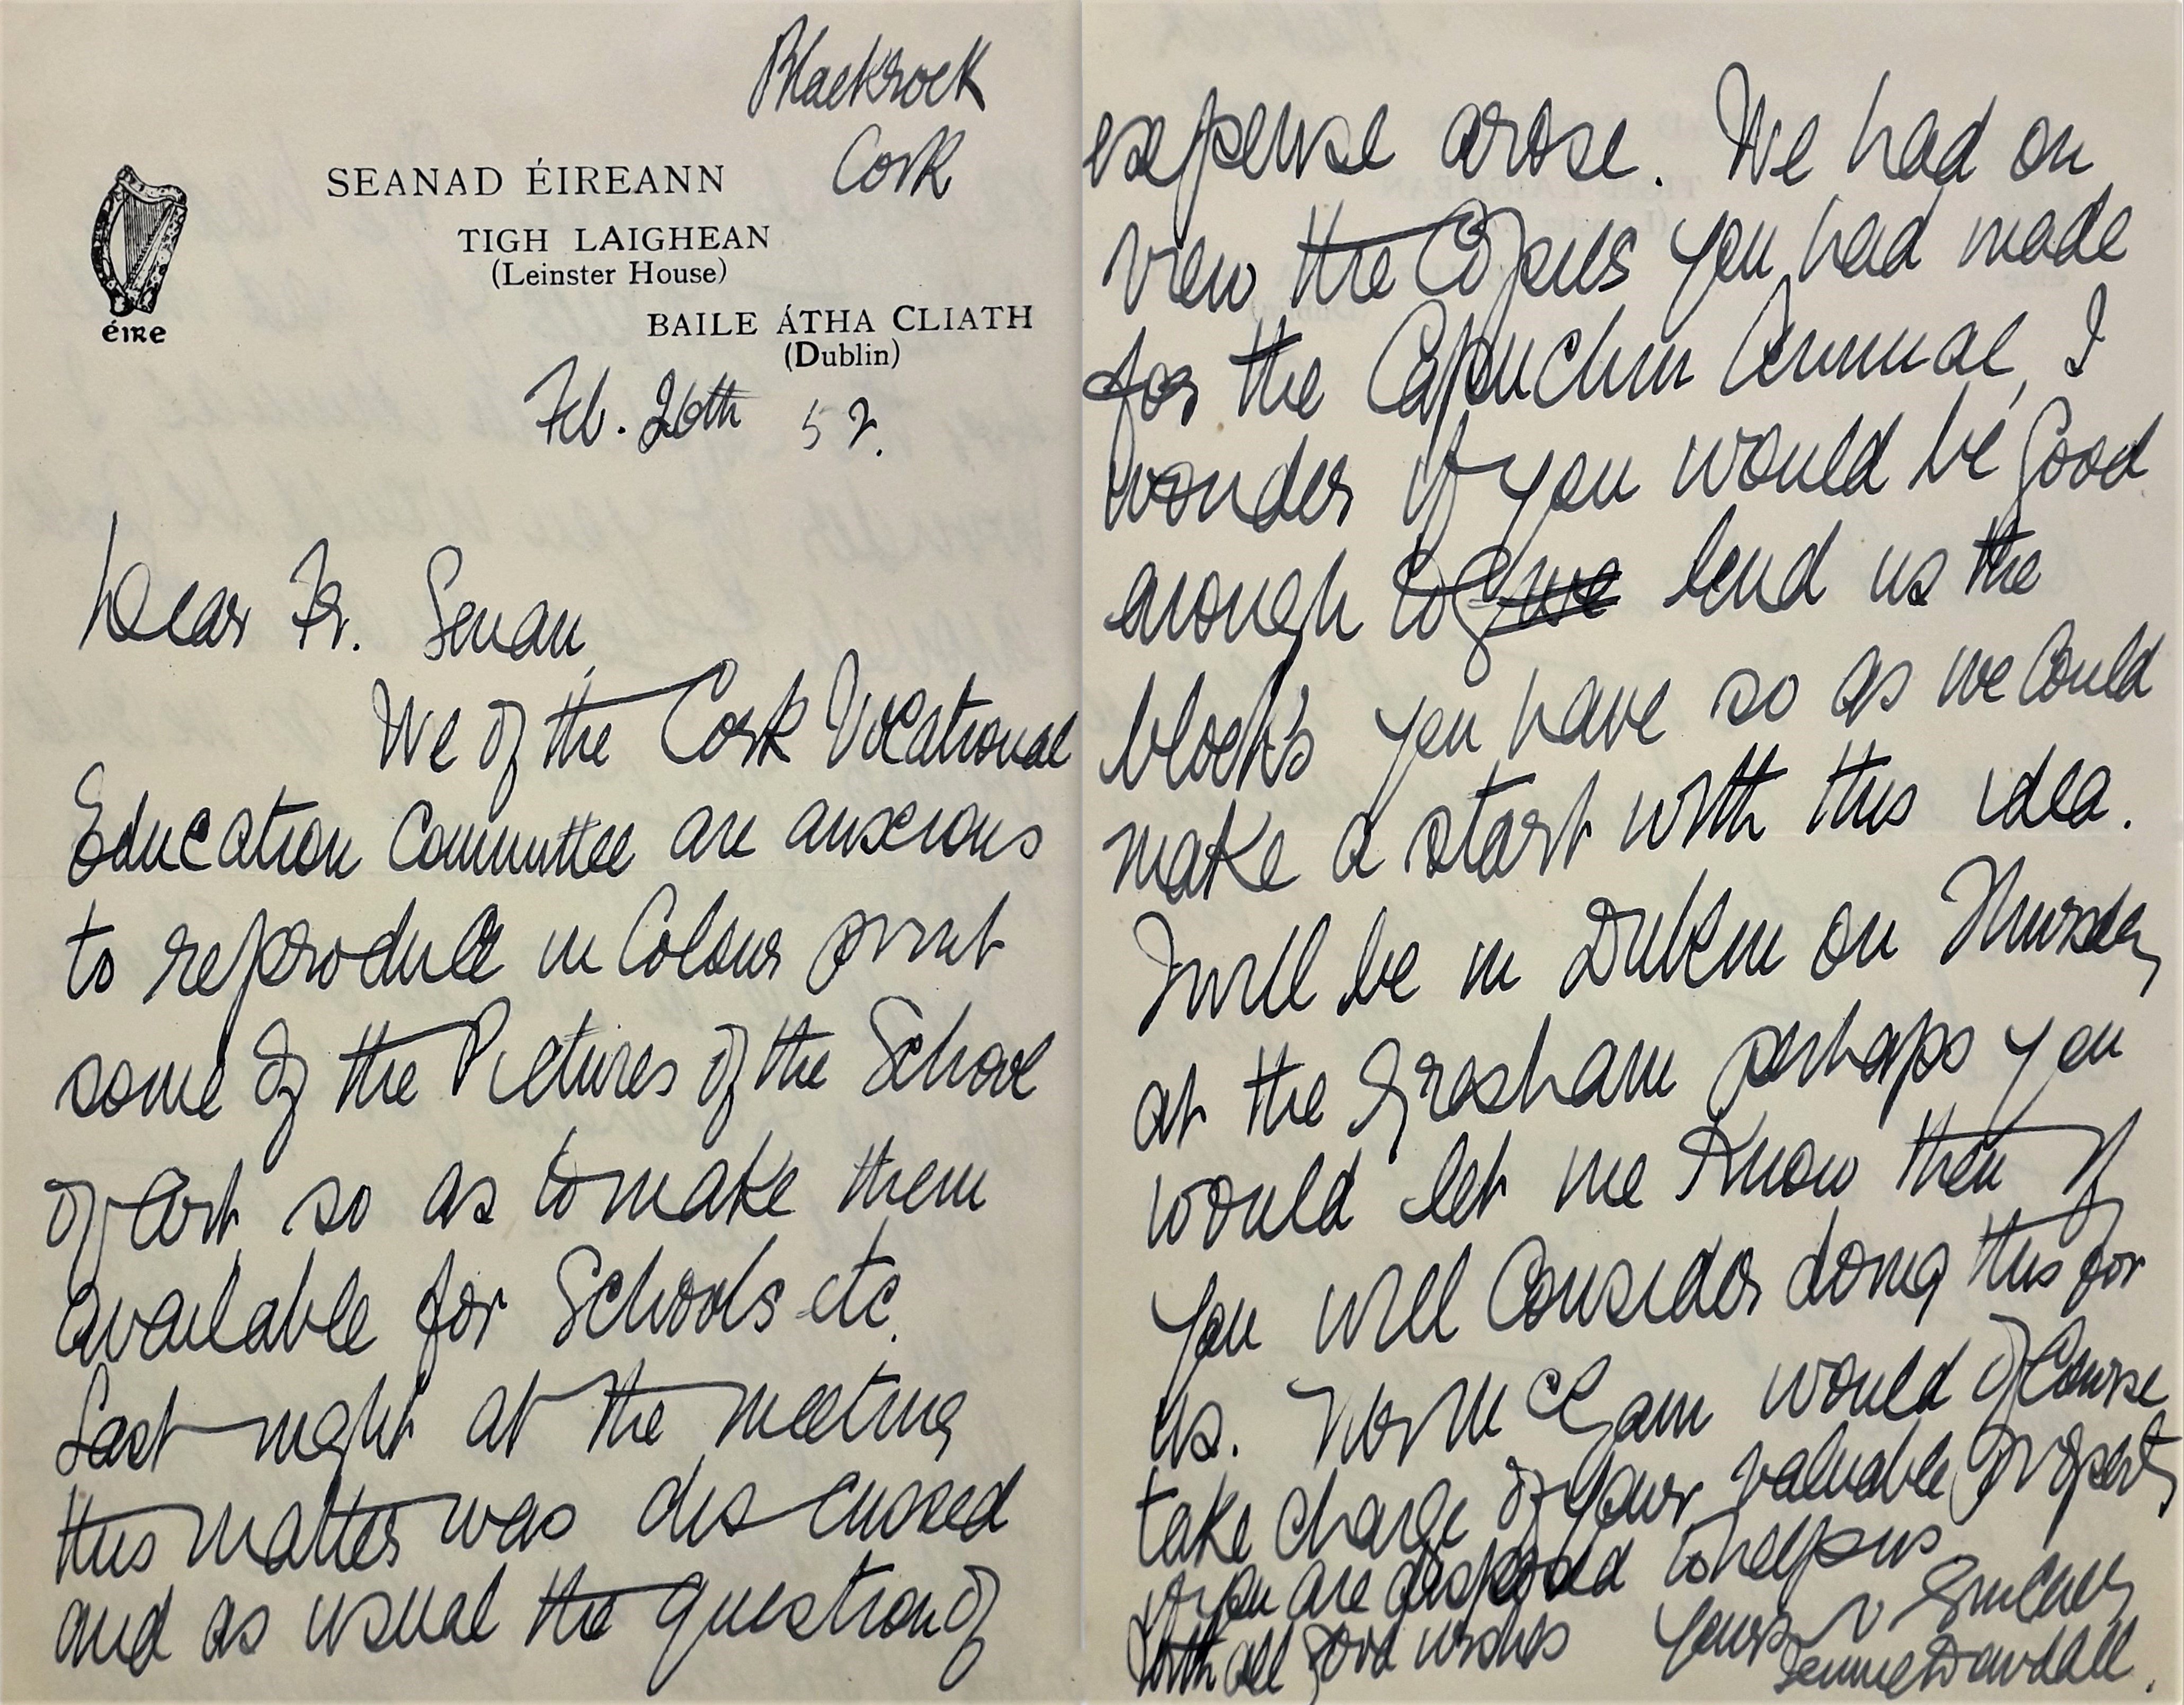 Blackrock
Cork
SEANAD ÉIREANN
TIGH LAIGHEAN
(Leinster House)
BAILE ÁTHA CLIATH
(Dublin)
éire
Feb. 26th 52.
Dear Fr. Senan,
We of the Cork Vocational
Education Committee are anxious
to reproduce in Colour print
some of the Pictures of the School
of Art so as to make them
available for Schools etc.
Last night at the meeting
this matter was discussed
and as usual the question of
expense arose. We had on
view the Copies you had made
for the Capuchin Annual, I
wonder if you would be good
enough to give lend us the
block's you have so as we could
make a start with this idea.
I will be in Dublin on Thursday
at the Gresham perhaps you
would let me know then if
you will Consider doing this for
us. would of Course
take charge of your valuable property
if you are disposed to help us
With all good wishes Yours v Sincerely
Jennie Dowdall.